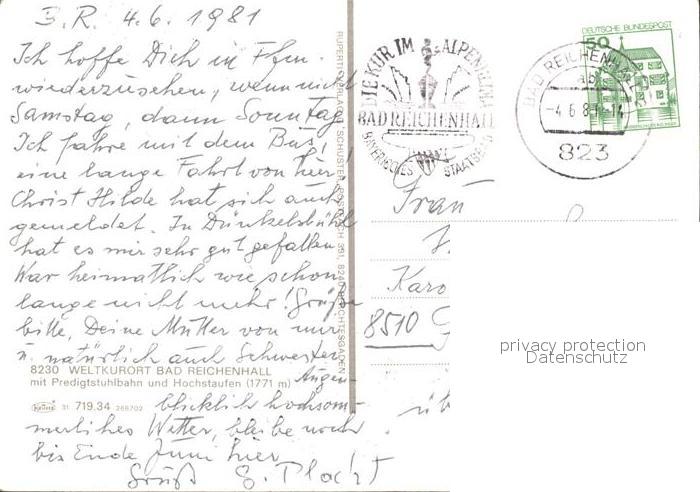 B.R. 4.6.1981
Ich hoffe Dich in Ffm.
wiederzusehen, wenn nicht
Samstag, dann Sonntag
Ich fahre mit dem Bus,
eine lange Fahrt von hier!
Christ Hilde hat sich auch
gemeldet. In Dünkelsbühl
hat es mir sehr gut gefallen.
War heimatlich wie schon
lange nicht mehr! Grüße
bitte, Deine Mutter von mir
u. natürlich auch Schwester.
8230 WELTKURORT BAD REICHENHALL
mit Predigtstuhlbahn und Hochstaufen (1771 m)
Augen-
31 719.34 268702
blicklich hochsom-
merliches Wetter, bleibe noch
bis Ende Juni hier
Gruß
RUPERTI-VERLAG H. SCHUSTER, POSTFACH 391, 8240 BERCHTESGADEN
DIE KUR IM ALPENKLIMA
BAD REICHENHALL
BAYERISCHES STAATSBAD
DEUTSCHE BUNDESPOST
50
BAD REICHENHALL
ab
-4.6.8
14
823
Frau
Karo
8510
privacy protection
Datenschutz